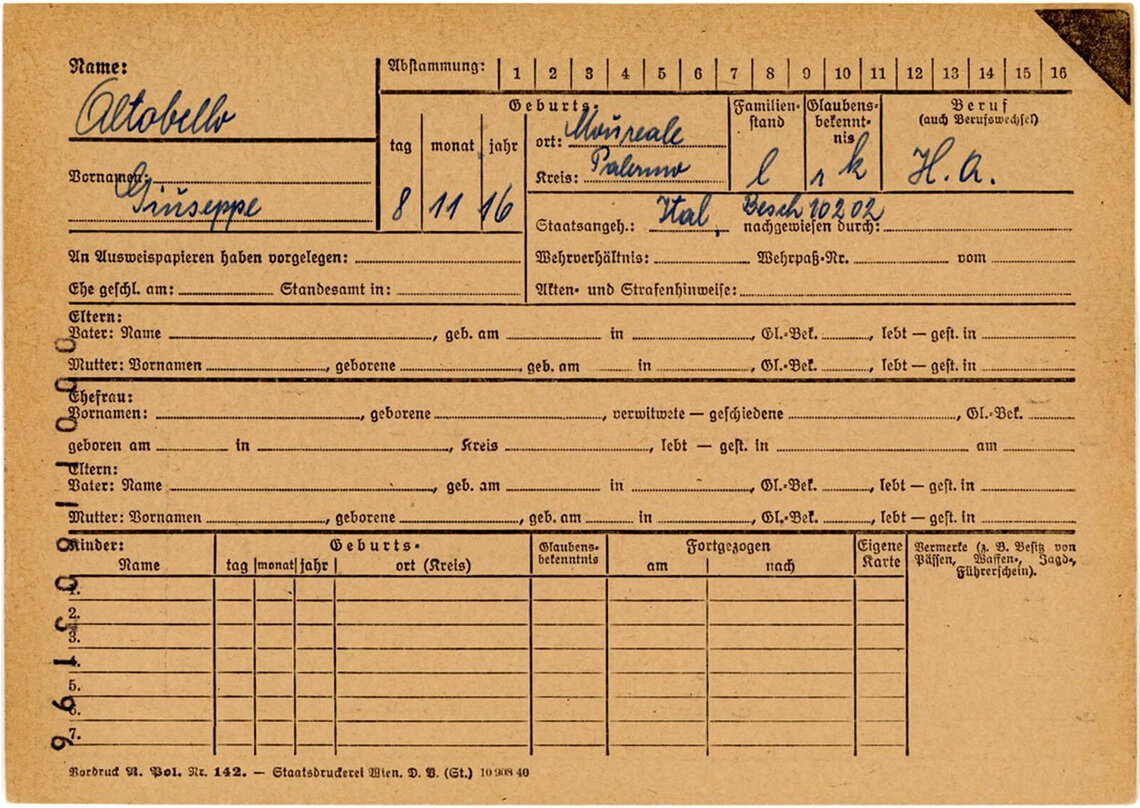 Name: Altobello
Abstammung: 1 2 3 4 5 6 7 8 9 10 11 12 13 14 15 16
Vornamen: Giuseppe
Geburts-
tag monat jahr
8 11 16
ort: Moureale
Kreis: Palermo
Familien-
stand
l
Glaubens-
bekennt-
nis
rk
Beruf
(auch Berufswechsel)
H. A.
Staatsangeh.: Ital. nachgewiesen durch: Besch 10202
An Ausweispapieren haben vorgelegen:
Wehrverhältnis: Wehrpaß-Nr. vom
Ehe geschl. am: Standesamt in:
Akten- und Strafenhinweise:
Eltern:
Vater: Name , geb. am in , Gl.-Bek. , lebt — gest. in
Mutter: Vornamen , geborene , geb. am in , Gl.-Bek. , lebt — gest. in
Ehefrau:
Vornamen: , geborene , verwitwete — geschiedene , Gl.-Bek.
geboren am in , Kreis , lebt — gest. in am
Eltern:
Vater: Name , geb. am in , Gl.-Bek. , lebt — gest. in
Mutter: Vornamen , geborene , geb. am in , Gl.-Bek. , lebt — gest. in
Kinder:
Name
Geburts-
tag monat jahr ort (Kreis)
Glaubens-
bekenntnis
Fortgezogen
am nach
Eigene
Karte
Vermerke (z. B. Besitz von
Pässen, Waffen-, Jagd-,
Führerschein).
1.
2.
3.
4.
5.
6.
7.
Vordruck A. Pol. Nr. 142. — Staatsdruckerei Wien. D. B. (St.) 10 908 40